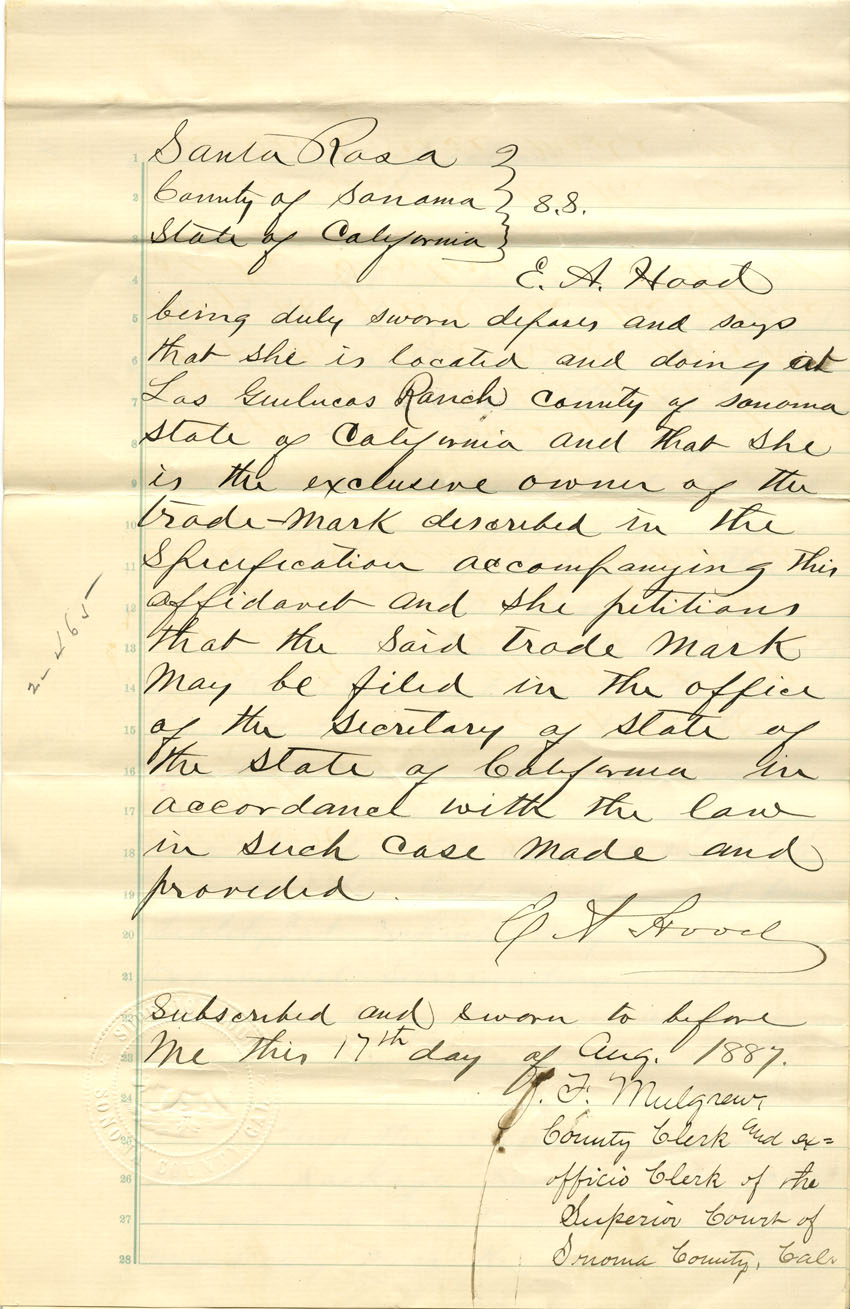 Santa Rosa
County of Sonoma
State of California
S.S.
E. A. Hood
being duly sworn deposes and says
that she is located and doing at
Los Guilucos Ranch County of Sonoma
State of California and that she
is the exclusive owner of the
trade-mark described in the
Specification accompanying this
affidavit and she petitions
that the said trade mark
may be filed in the office
of the secretary of state of
the state of California in
accordance with the law
in such case made and
provided.
E A Hood
Subscribed and sworn to before
me this 17th day of Aug. 1887.
J. F. Mulgrew,
County Clerk and ex=
officio Clerk of the
Superior Court of
Sonoma County, Cal.
2-465
1
2
3
4
5
6
7
8
9
10
11
12
13
14
15
16
17
18
19
20
21
22
23
24
25
26
27
28
SONOMA COUNTY CAL